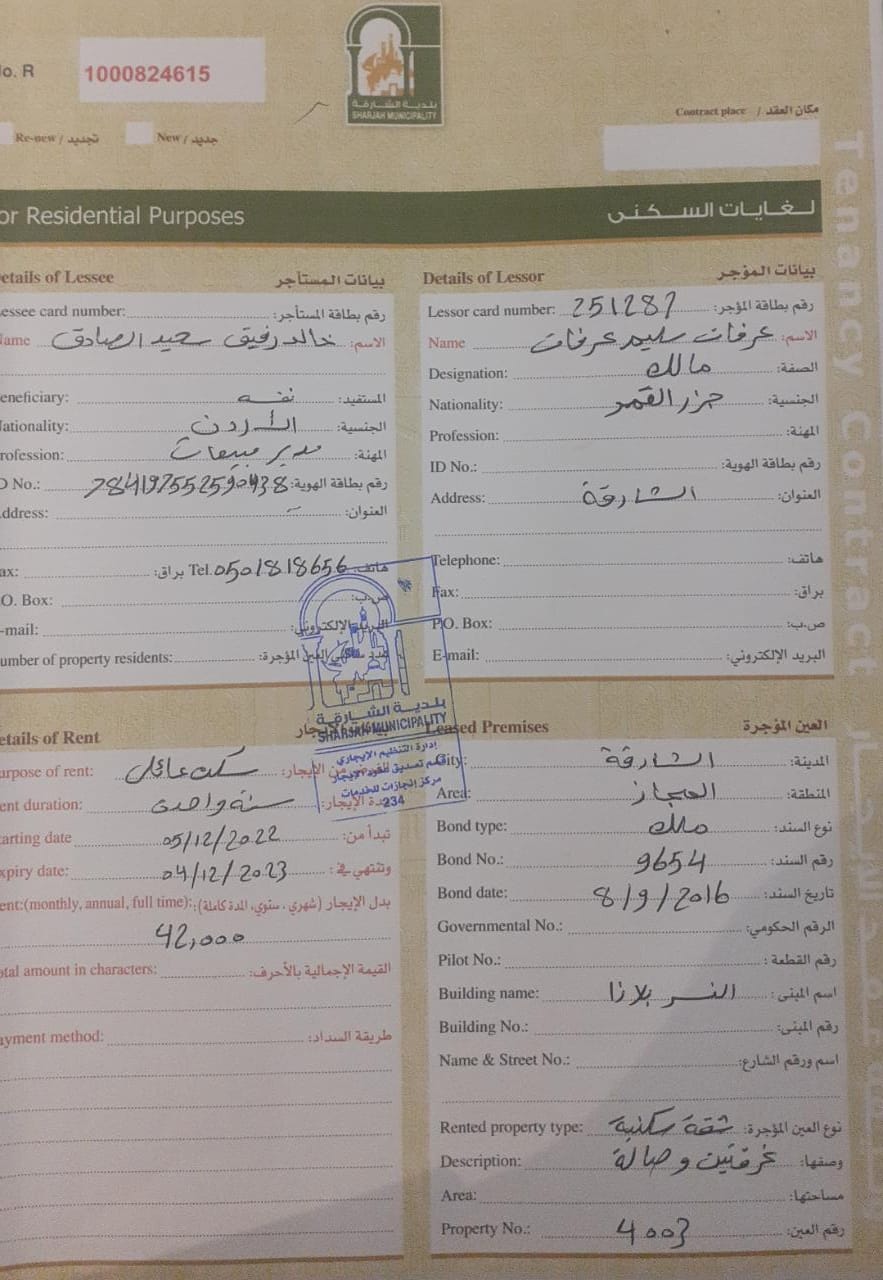 No. R 1000824615
بلدية الشارقة
SHARJAH MUNICIPALITY
Contract place / مكان العقد
Re-new / تجديد New / جديد
or Residential Purposes لغايات السكنى
etails of Lessee بيانات المستأجر
essee card number: رقم بطاقة المستأجر:
ame خالد رفيق سعيد الصادق الاسم:
eneficiary: نفسه المستفيد:
ationality: الأردن الجنسية:
rofession: مدير مبيعات المهنة:
D No.: رقم بطاقة الهوية:
ddress: العنوان:
ax: براق: Tel. 0501818656 هاتف:
.O. Box: ص.ب:
-mail: البريد الإلكتروني:
umber of property residents: المؤجرة:
Details of Lessor بيانات المؤجر
Lessor card number: 251287 رقم بطاقة المؤجر:
Name عرفات سليم عرفات الاسم:
Designation: مالك الصفة:
Nationality: جزر القمر الجنسية:
Profession: المهنة:
ID No.: رقم بطاقة الهوية:
Address: الشارقة العنوان:
Telephone: هاتف:
Fax: براق:
P.O. Box: ص.ب:
E-mail: البريد الإلكتروني:
بلدية الشارقة
SHARJAH MUNICIPALITY
إدارة التنظيم الايجاري
قسم تصديق عقود الايجار
مركز إنجازات للخدمات
234
etails of Rent
urpose of rent: سكن عائلي الإيجار:
ent duration: سنة واحدة مدة الإيجار:
tarting date 05/12/2022 تبدأ من:
xpiry date: 04/12/2023 وتنتهي في:
ent:(monthly, annual, full time): بدل الإيجار (شهري، سنوي، المدة كاملة):
42,000
otal amount in characters: القيمة الإجمالية بالأحرف:
ayment method: طريقة السداد:
Leased Premises العين المؤجرة
City: الشارقة المدينة:
Area: المجاز المنطقة:
Bond type: ملك نوع السند:
Bond No.: 9654 رقم السند:
Bond date: 8/9/2016 تاريخ السند:
Governmental No.: الرقم الحكومي:
Pilot No.: رقم القطعة:
Building name: النسر بلازا اسم المبنى:
Building No.: رقم المبنى:
Name & Street No.: اسم ورقم الشارع:
Rented property type: شقة سكنية نوع العين المؤجرة:
Description: غرفتين وصالة وصفها:
Area: مساحتها:
Property No.: 4003 رقم العين:
Tenancy Contract